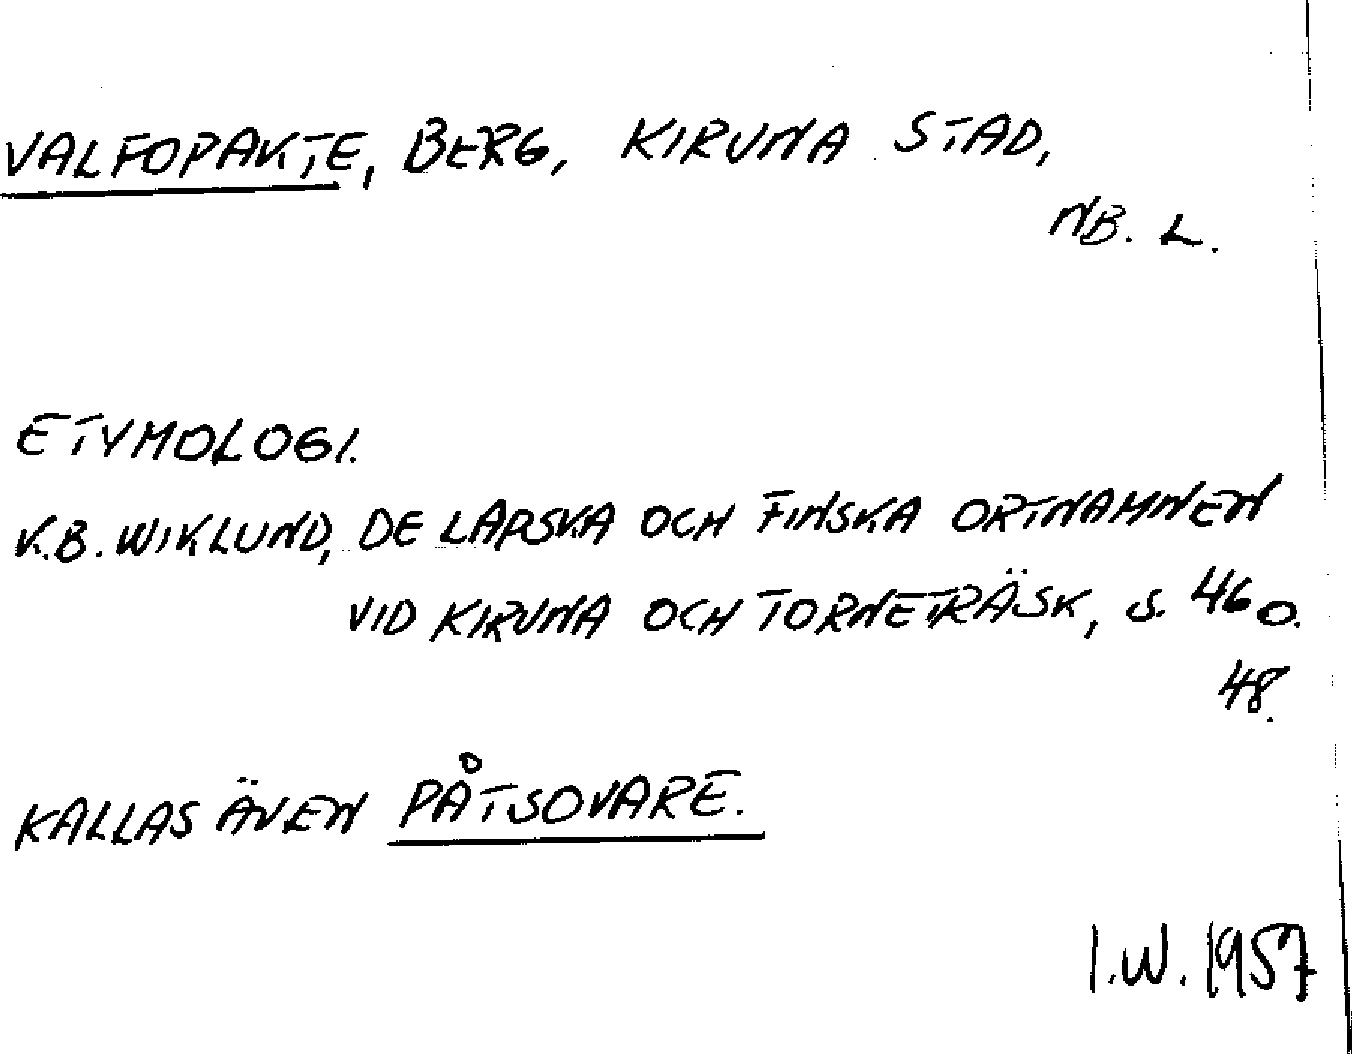 VALFOPAKTE, BERG, KIRUNA STAD,
NB. L.
ETYMOLOGI.
K.B. WIKLUND, DE LAPSKA OCH FINSKA ORTNAMNEN
VID KIRUNA OCH TORNETRÄSK, S. 46 O.
48.
KALLAS ÄVEN PÅTSOVARE.
I.W. 1957